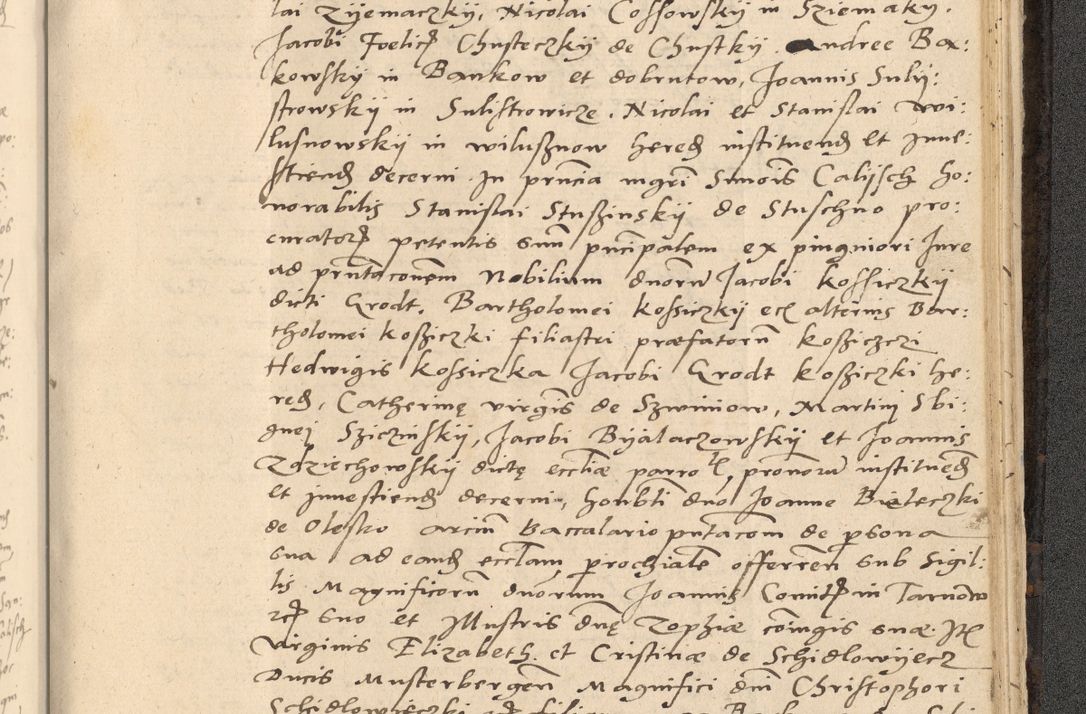 lai Zyemaczkij, Nicolai Cossowskij in Sziemaky.
Jacobi Foelicꝭ Chusteczkij de Chustky. Andree Ba:
kowskij in Bankow et dobrutow, Joannis Sulij:
strowskij in Sulistrowicze. Nicolai et Stanislai wi:
lusnowskij in wilusznow hered instituend et Inue:
stiend decerni. In pntia mgri Simois Calijsch ho:
norabilis Stanislai Stuszinskij de Stuschno pro:
curatorꝭ petentis suum pncipalem ex pinguiori Jure
ad pntaconem Nobilium dnorum Jacobi kossiczkij
dicti Grodt. Bartholomei kossiczkij ecl alterius Bar:
tholomei kosziczki filiastri præfatorum kosziczczi
Hedwigis kossiczka Jacobi Grodt kosziczki he:
red, Catherinę virgis de Szwiniow, Martinj Sbi:
gnej Sziczinskij, Jacobi Bijalaczowskij et Joannis
Zdziechowskij dictę eccliæ parrotl, pronorum instituend
et inuestiend decerni, honbli dno Joanne Bialeczki
de Olesko arcium Baccalario pntacom de psona
sua ad eand ecclam prochialem offerren sub Sigil:
lis Magnificorum dnorum Joannis Comitꝭ in Tarnow
rcꝭ suo et Illustris dnę Zophiæ coniugis suæ. Itl
virginis Elizabeth. et Cristinæ de Schidlowijecz
Ducis Musterbergen Magnifici dni Christophori